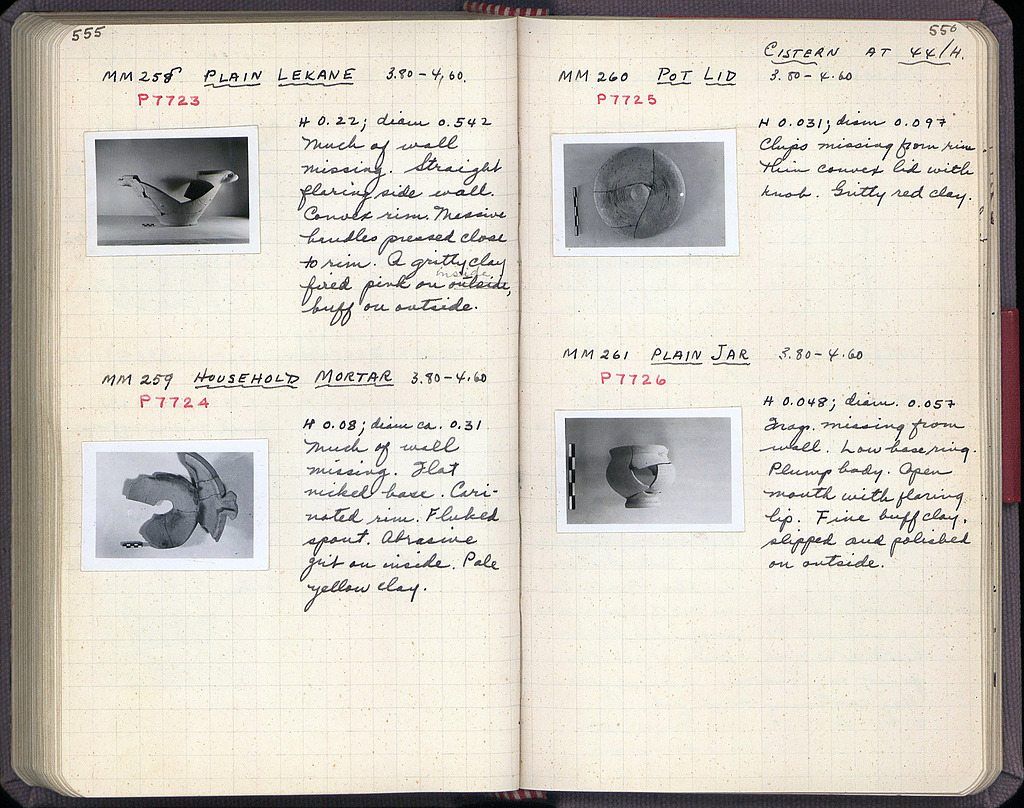 555
MM 258 PLAIN LEKANE 3.80-4.60.
P7723
H 0.22; diam 0.542
Much of wall
missing. Straight
flaring side wall.
Convex rim. Massive
handles pressed close
to rim. A gritty clay
inside
fired pink on outside,
buff on outside.
MM 259 HOUSEHOLD MORTAR 3.80-4.60
P7724
H 0.08; diam ca. 0.31
Much of wall
missing. Flat
nicked base. Cari-
nated rim. Fluked
spout. Abrasive
grit on inside. Pale
yellow clay.
556
CISTERN AT 44/H.
MM 260 POT LID 3.80-4.60
P7725
H 0.031; diam 0.097
Chips missing from rim.
Thin convex lid with
knob. Gritty red clay.
MM 261 PLAIN JAR 3.80-4.60
P7726
H 0.048; diam. 0.057
Frag. missing from
wall. Low base ring.
Plump body. Open
mouth with flaring
lip. Fine buff clay,
slipped and polished
on outside.